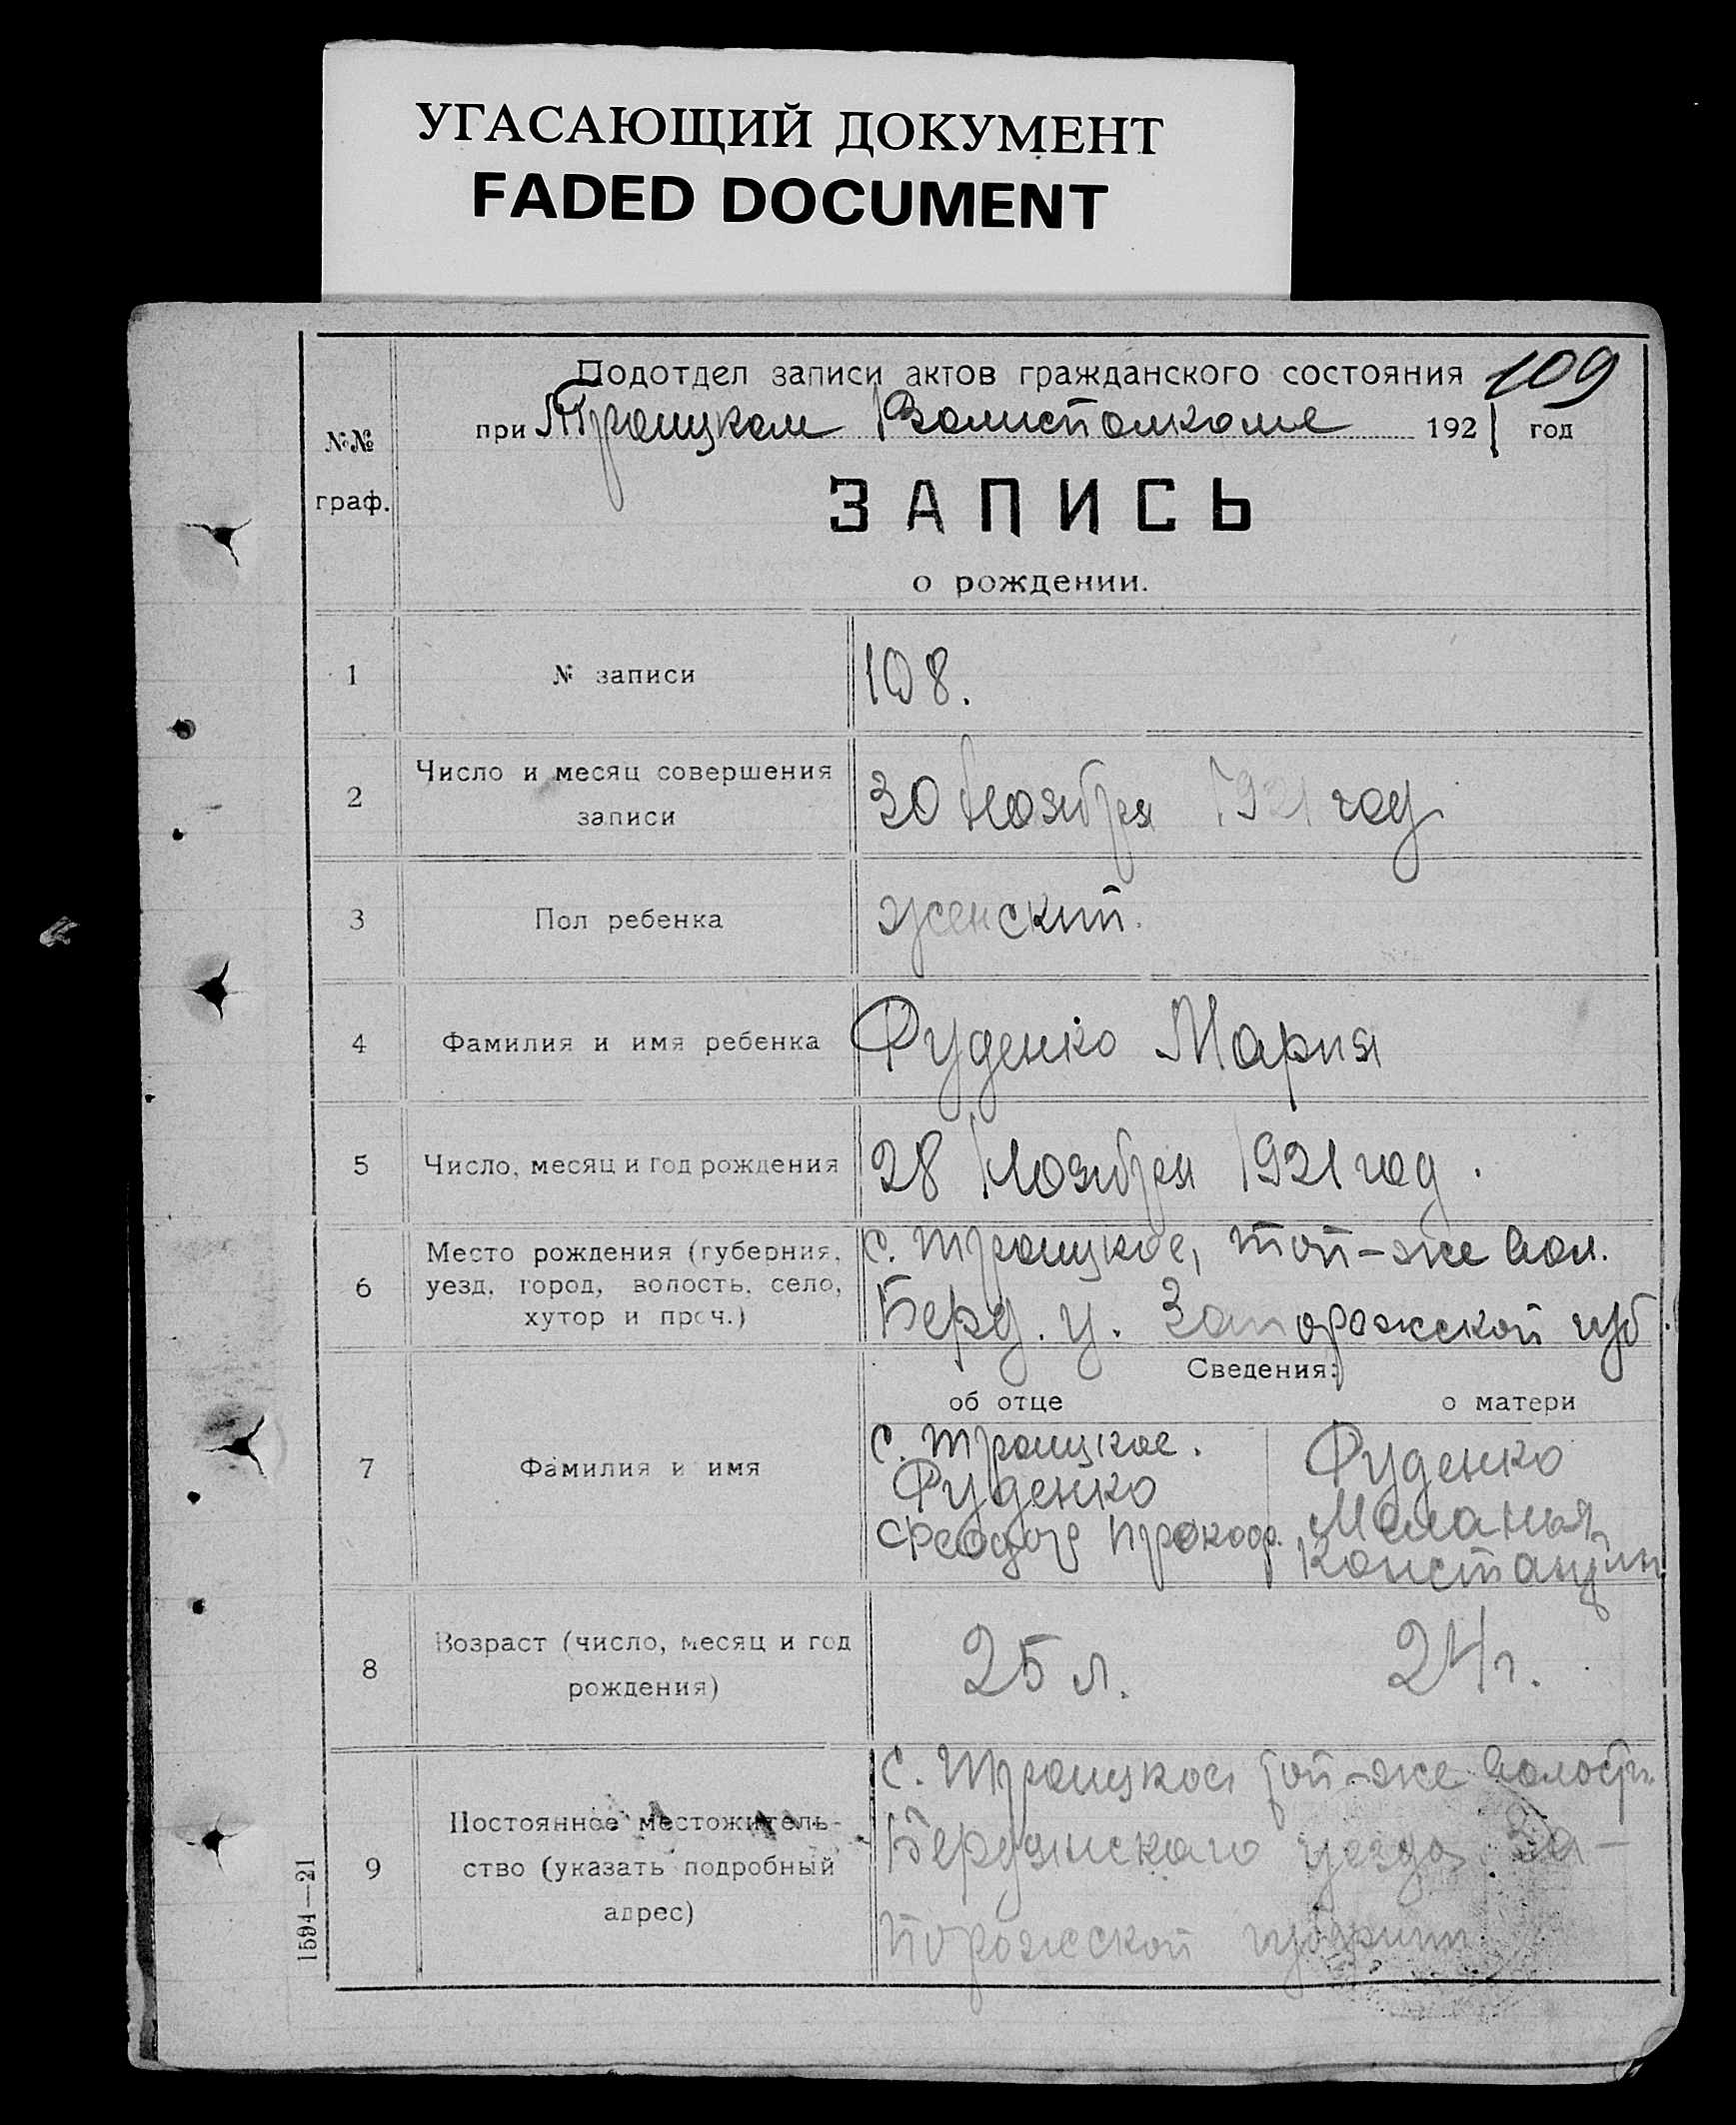 УГАСАЮЩИЙ ДОКУМЕНТ
FADED DOCUMENT
109
Подотдел записи актов гражданского состояния
при Троицком Волисполкоме 1921 год
№№
граф.
ЗАПИСЬ
о рождении.
1 № записи 108.
2 Число и месяц совершения
записи
30 Ноября 1921 год
3 Пол ребенка женский.
4 Фамилия и имя ребенка Руденко Мария
5 Число, месяц и год рождения 28 Ноября 1921 год.
6 Место рождения (губерния,
уезд, город, волость, село,
хутор и проч.)
с. Троицкое, той-же вол.
Берд. у. Запорожской губ.
Сведения:
об отце о матери
7 Фамилия и имя
с. Троицкое.
Руденко
Феодор Прокоф.
Руденко
Мелания
Константин
8 Возраст (число, месяц и год
рождения)
25 л. 24 г.
9 Постоянное местожитель-
ство (указать подробный
адрес)
с. Троицкое той-же волости
Бердянского уезда За-
порожской губернии
1594—21